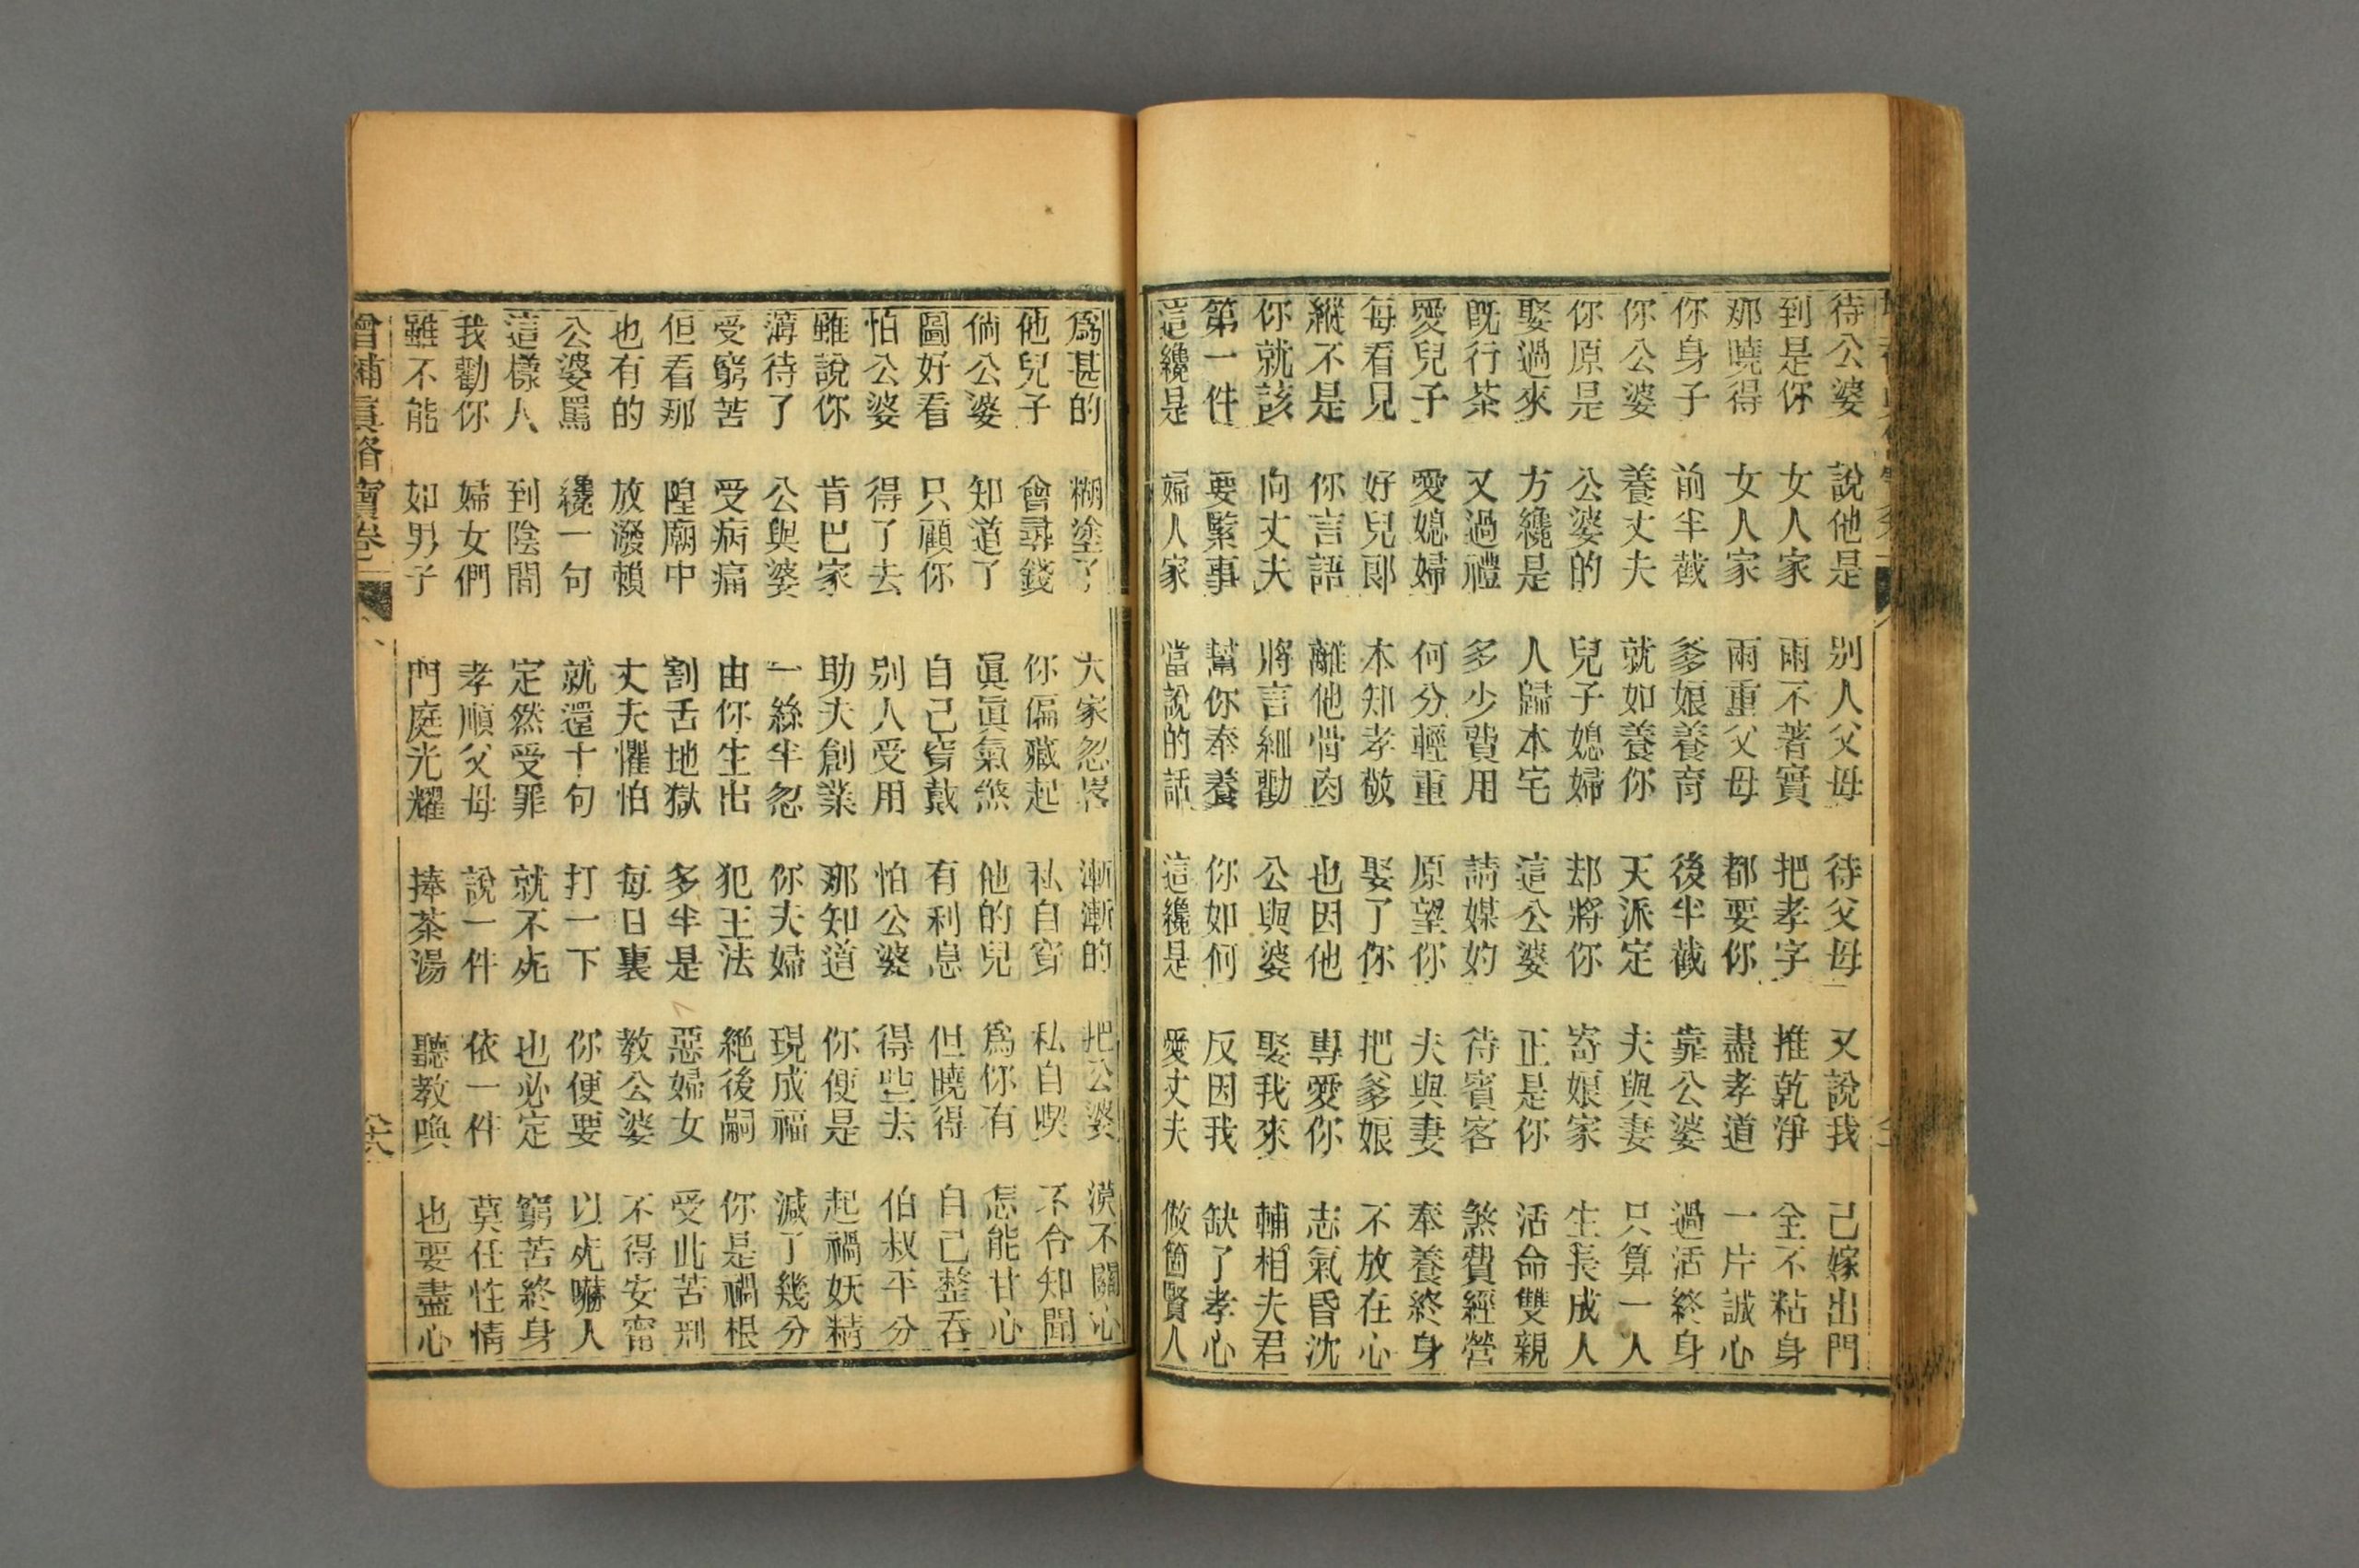 待公婆 說他是 别人父母 待父母 又說我 己嫁出門
到是你 女人家 兩不著實 把孝字 推乾淨 全不粘身
那曉得 女人家 兩重父母 都要你 盡孝道 一片誠心
你身子 前半截 爹娘養育 後半截 靠公婆 過活終身
你公婆 養丈夫 就如養你 天派定 夫與妻 只算一人
你原是 公婆的 兒子媳婦 却將你 寄娘家 生長成人
娶過來 方纔是 人歸本宅 這公婆 正是你 活命雙親
旣行茶 又過禮 多少費用 請媒妁 待賓客 煞費經營
愛兒子 愛媳婦 何分輕重 原望你 夫與妻 奉養終身
每看見 好兒郎 本知孝敬 娶了你 把爹娘 不放在心
縱不是 你言語 離他骨肉 也因他 專愛你 志氣昏沈
你就該 向丈夫 將言細勸 公與婆 娶我來 輔相夫君
第一件 要緊事 幫你奉養 你如何 反因我 缺了孝心
這纔是 婦人家 當說的話 這纔是 愛丈夫 做箇賢人
爲甚的 糊塗了 大家忽畧 漸漸的 把公婆 漠不關心
他兒子 會尋錢 你偏藏起 私自穿 私自喫 不令知聞
倘公婆 知道了 眞眞氣煞 他的兒 爲你有 怎能甘心
圖好看 只顧你 自己穿戴 有利息 但曉得 自己整吞
怕公婆 得了去 别人受用 怕公婆 得些去 伯叔平分
雖說你 肯巴家 助夫創業 那知道 你便是 起禍妖精
薄待了 公與婆 一絲半忽 你夫婦 現成福 減了幾分
受窮苦 受病痛 由你生出 犯王法 絶後嗣 你是禍根
但看那 隍廟中 割舌地獄 多半是 惡婦女 受此苦刑
也有的 放潑賴 丈夫懼怕 每日裏 教公婆 不得安甯
公婆罵 纔一句 就還十句 打一下 你便要 以死嚇人
這樣人 到陰間 定然受罪 就不死 也必定 窮苦終身
我勸你 婦女們 孝順父母 說一件 依一件 莫任性情
雖不能 如男子 門庭光耀 捧茶湯 聽教喚 也要盡心